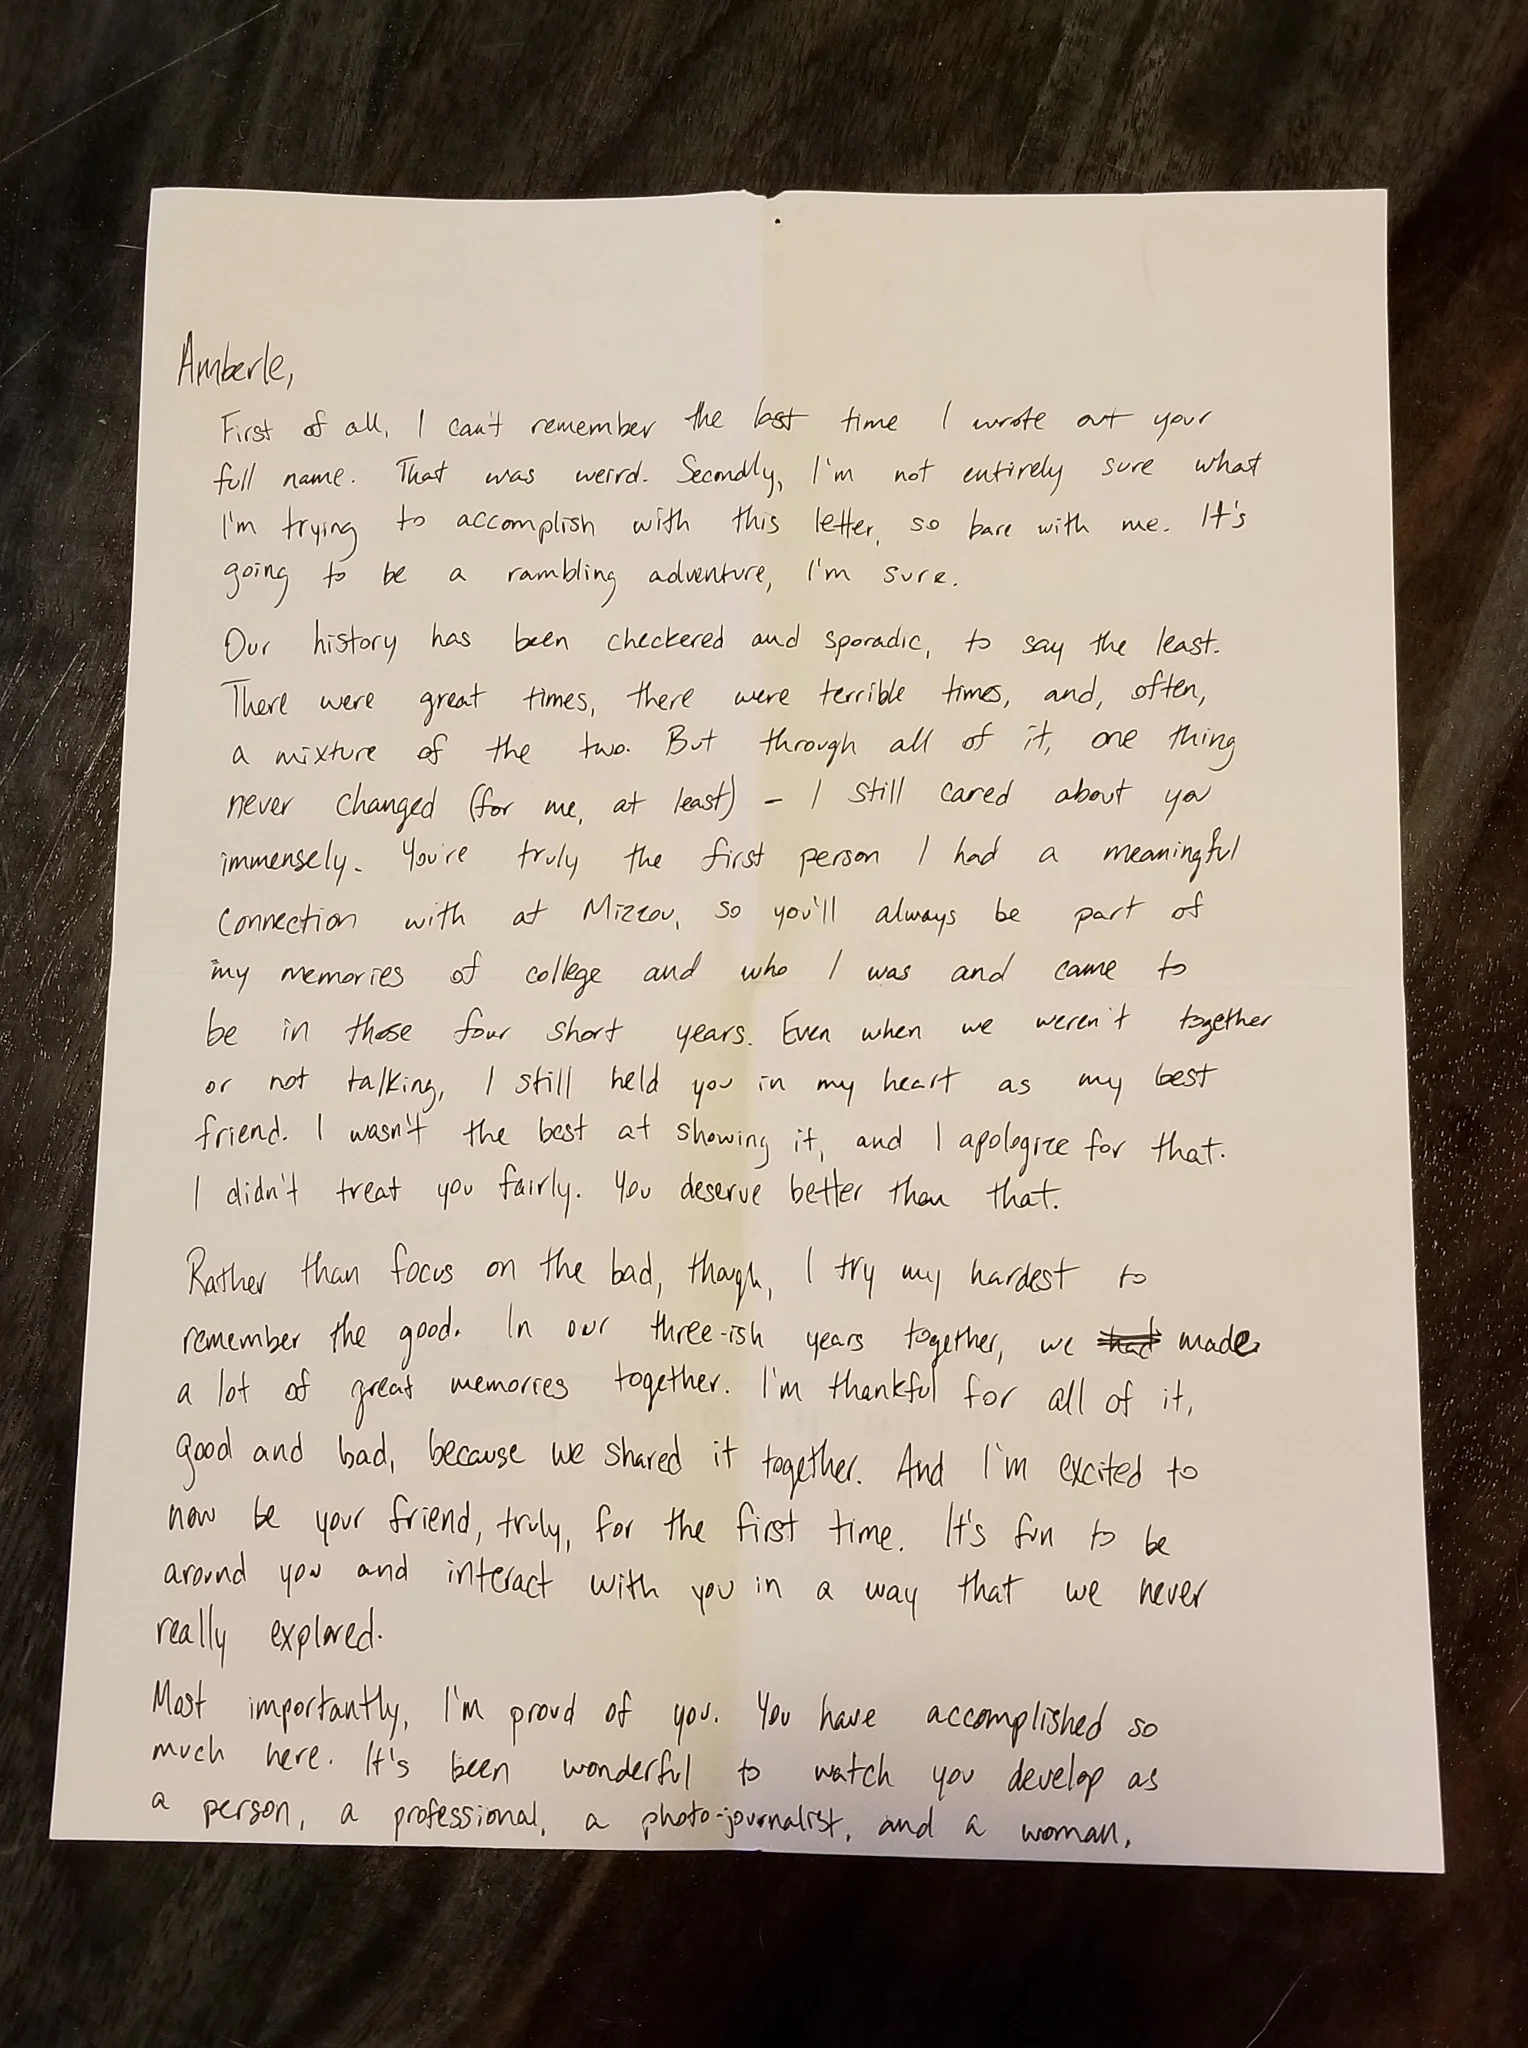 Amberle,
First of all, I can't remember the last time I wrote out your
full name. That was weird. Secondly, I'm not entirely sure what
I'm trying to accomplish with this letter, so bare with me. It's
going to be a rambling adventure, I'm sure.
Our history has been checkered and sporadic, to say the least.
There were great times, there were terrible times, and, often,
a mixture of the two. But through all of it, one thing
never changed (for me, at least) – I still cared about you
immensely. You're truly the first person I had a meaningful
connection with at Mizzou, so you'll always be part of
my memories of college and who I was and came to
be in those four short years. Even when we weren't together
or not talking, I still held you in my heart as my best
friend. I wasn't the best at showing it, and I apologize for that.
I didn't treat you fairly. You deserve better than that.
Rather than focus on the bad, though, I try my hardest to
remember the good. In our three-ish years together, we had made
a lot of great memories together. I'm thankful for all of it,
good and bad, because we shared it together. And I'm excited to
now be your friend, truly, for the first time. It's fun to be
around you and interact with you in a way that we never
really explored.
Most importantly, I'm proud of you. You have accomplished so
much here. It's been wonderful to watch you develop as
a person, a professional, a photo-journalist, and a woman.